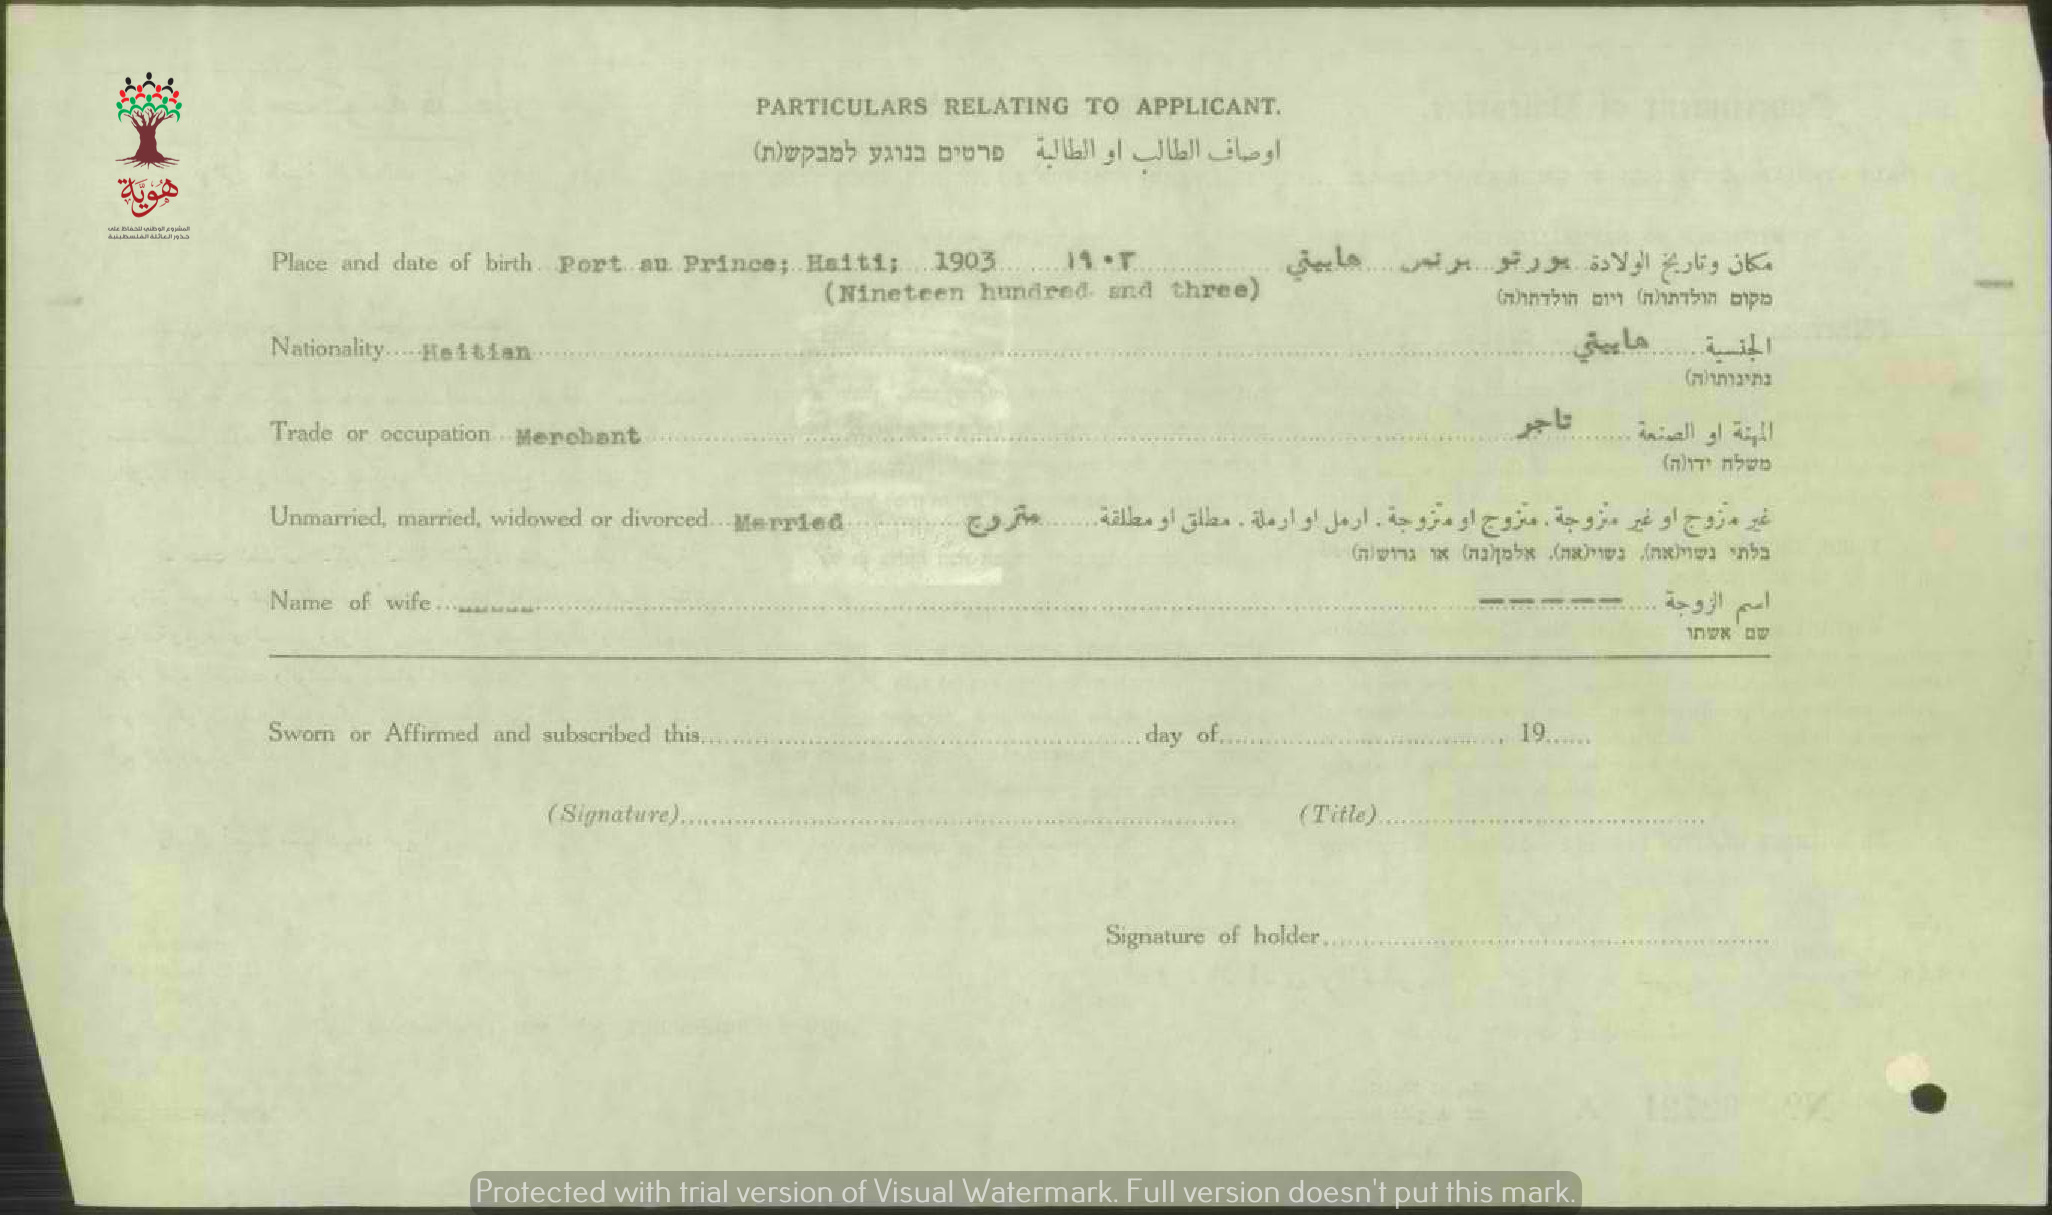 هوية
المشروع الوطني للحفاظ على
جذور العائلة الفلسطينية
PARTICULARS RELATING TO APPLICANT.
اوصاف الطالب او الطالبة פרטים בנוגע למבקש(ת)
Place and date of birth Port au Prince; Haiti; 1903 ١٩٠٣ مكان وتاريخ الولادة بورتو برنس هاييتي
(Nineteen hundred and three) מקום הולדתו(ה) ויום הולדתו(ה)
Nationality Haitian الجنسية هاييتي
נתינותו(ה)
Trade or occupation Merchant المهنة او الصنعة تاجر
משלח ידו(ה)
Unmarried, married, widowed or divorced Married متزوج غير متزوج او غير متزوجة . متزوج او متزوجة . ارمل او ارملة . مطلق او مطلقة
בלתי נשוי(אה), נשוי(אה), אלמן(נה) או גרוש(ה)
Name of wife ------ اسم الزوجة -----
שם אשתו
Sworn or Affirmed and subscribed this day of 19
(Signature) (Title)
Signature of holder
Protected with trial version of Visual Watermark. Full version doesn't put this mark.